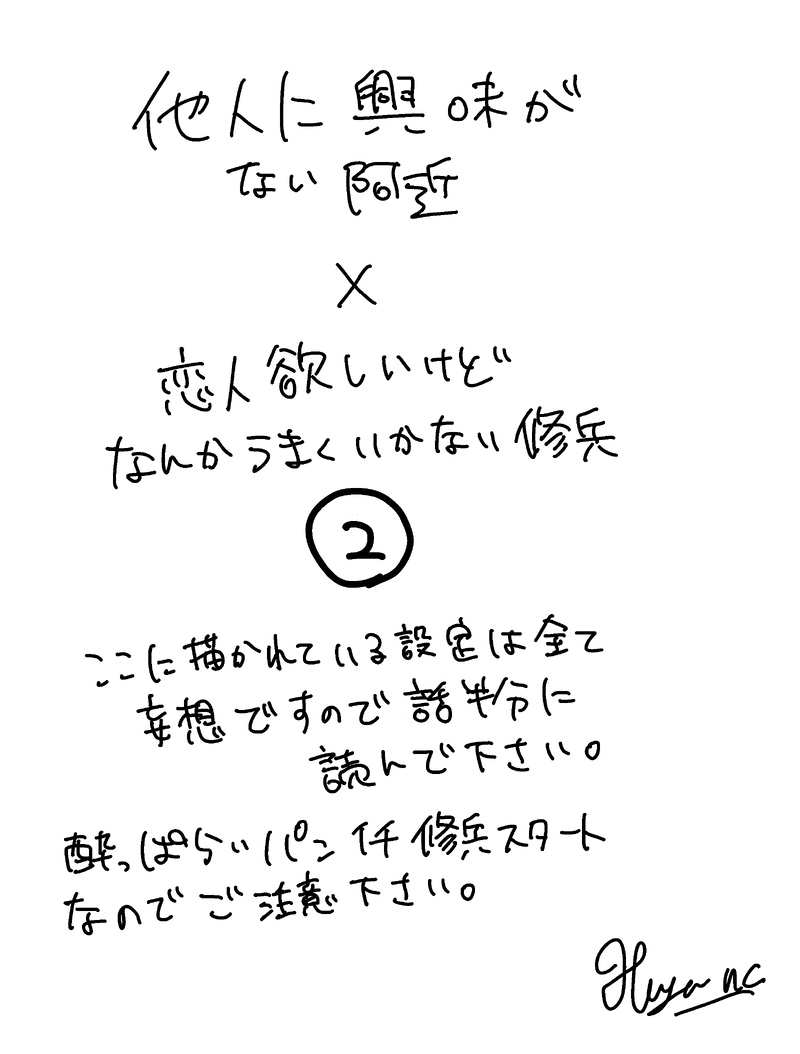 他人に興味が
ない阿近
×
恋人欲しいけど
なんかうまくいかない修兵
②
ここに描かれている設定は全て
妄想ですので話半分に
読んで下さい。
酔っぱらいパンイチ修兵スタート
なのでご注意下さい。